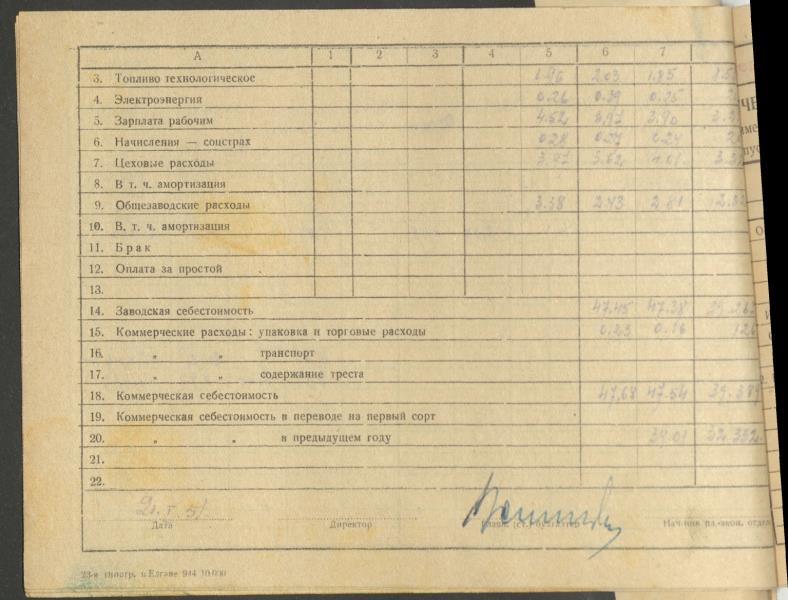 А 1 2 3 4 5 6 7
3. Топливо технологическое 1.96 2.03 1.85
4. Электроэнергия 0.26 0.39 0.25
5. Зарплата рабочим 4.52 3.97 3.90
6. Начисления — соцстрах 0.28 0.27 0.24
7. Цеховые расходы 3.97 3.62 4.01
8. В т. ч. амортизация
9. Общезаводские расходы 3.38 2.43 2.81
10. В. т. ч. амортизация
11. Брак
12. Оплата за простой
13.
14. Заводская себестоимость 47.45 47.38
15. Коммерческие расходы: упаковка и торговые расходы 0.23 0.16 126
16. " " транспорт
17. " " содержание треста
18. Коммерческая себестоимость 47,68 47.54 39.389
19. Коммерческая себестоимость в переводе на первый сорт
20. " " в предыдущем году 39.01 32.332
21.
22.
Дата Директор Нач-ник пл.-экон. отдел
23-я типогр. в Елгаве 944